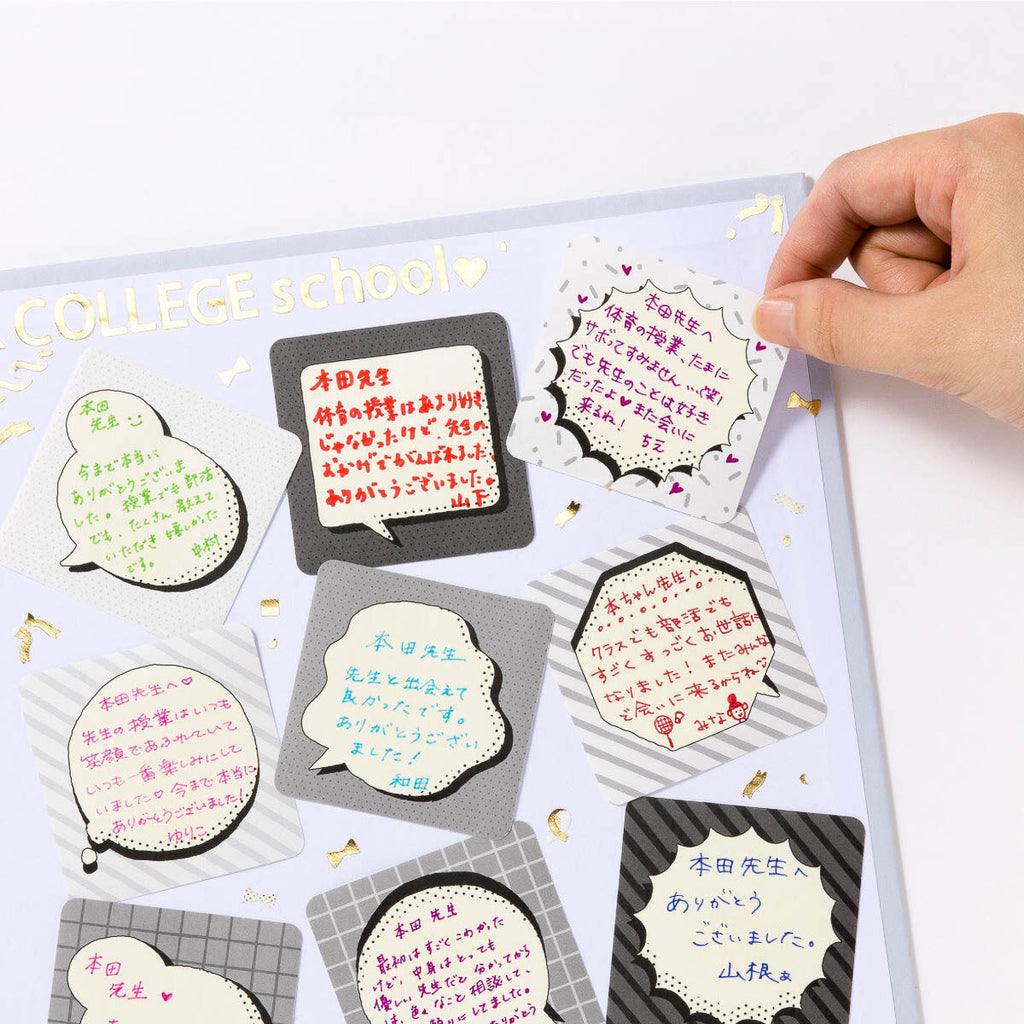 COLLEGE school♥
本田
先生
今まで本当に
ありがとうございま
した。授業でも部活
でも、たくさん教えて
いただき嬉しかった
です。 中村
本田先生
体育の授業はあまり好き
じゃなかったけど、先生の
おかげでがんばれました。
ありがとうございました。
山下
本田先生へ
体育の授業、たまに
サボってすみません…(笑)
でも先生のことは好き
だったよ♥また会いに
来るね! ちえ
本田先生へ♡
先生の授業はいつも
笑顔であふれていて
いつも一番楽しみにして
いました♡今まで本当に
ありがとうございました!
ゆりこ
本田先生
先生と出会えて
良かったです。
ありがとうござい
ました!
和田
本ちゃん先生へ
クラスでも部活でも
すごくすっごくお世話に
なりました!またみんな
で会いに来るからね
みな
本田
先生 ♥
本田先生
最初はすごくこわかった
けど、中身はとっても
優しい先生だと分かってから
は、色々なこと相談して、
りにしてました。
ありがとう
本田先生へ
ありがとう
ございました。
山根